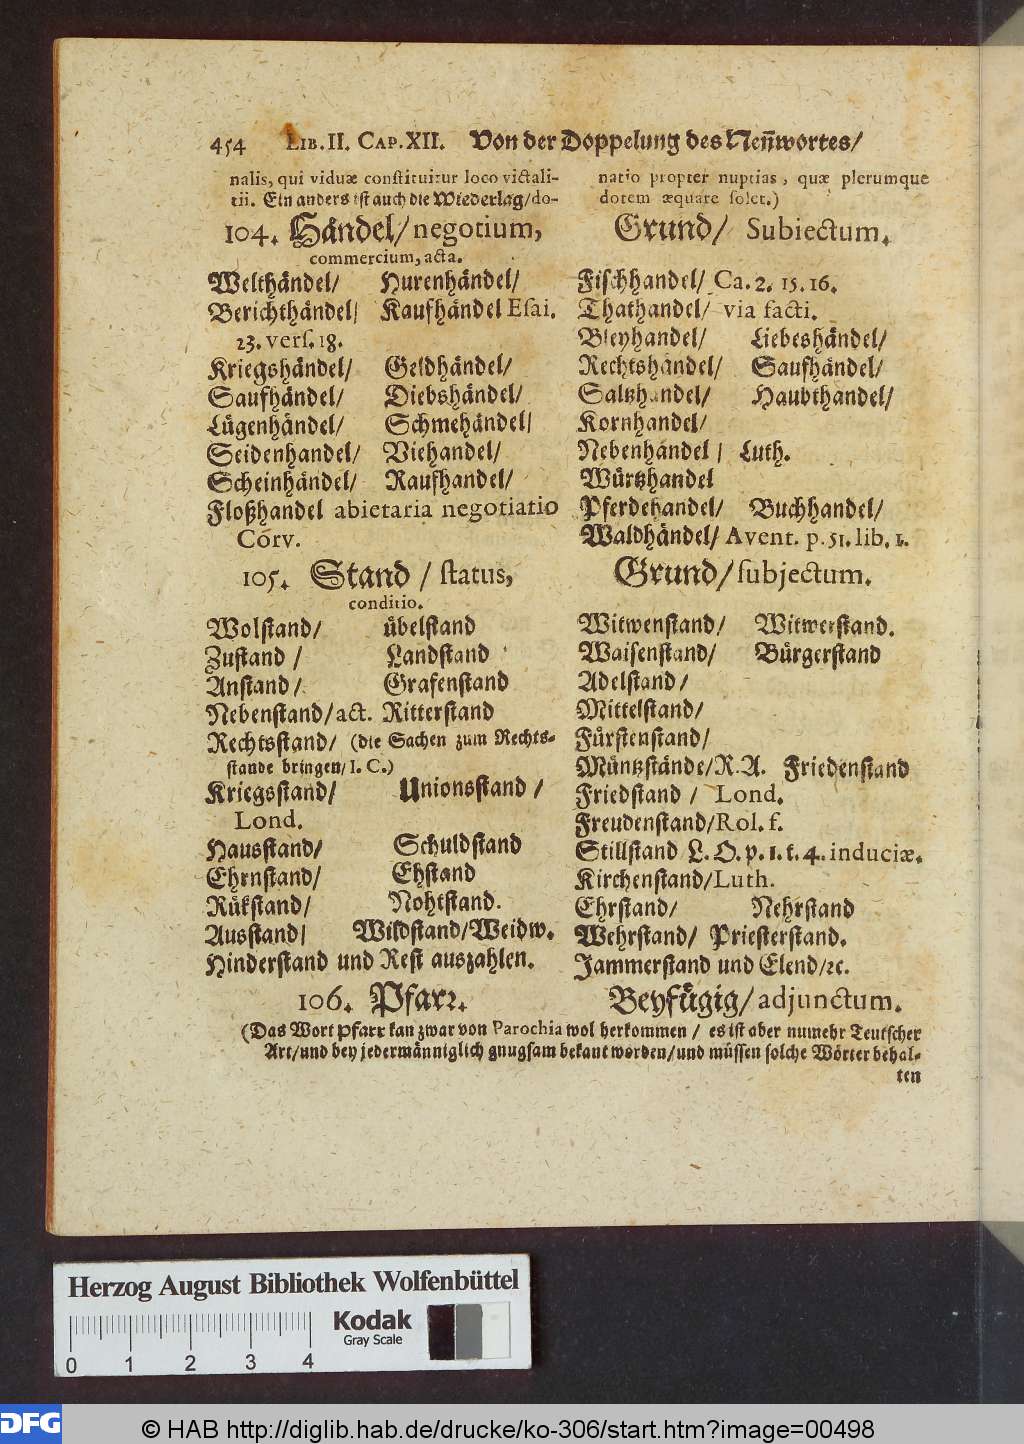 454 LIB. II. CAP. XII. Von der Doppelung des Nen̄wortes/
nalis, qui viduæ constituitur loco victali-
tii. Ein anders ist auch die Wiederlag/do-
natio propter nuptias, quæ plerumque
dotem æquare solet.)
104. Händel/ negotium,
commercium, acta.
Grund/ Subiectum.
Welthändel/ Hurenhändel/
Berichthändel/ Kaufhändel Esai.
23. vers. 18.
Kriegshändel/ Geldhändel/
Saufhändel/ Diebshändel/
Lügenhändel/ Schmehändel/
Seidenhandel/ Viehandel/
Scheinhändel/ Raufhandel/
Floßhandel abietaria negotiatio
Corv.
Fischhandel/ Ca. 2. 15. 16.
Thathandel/ via facti.
Bleyhandel/ Liebeshändel/
Rechtshandel/ Saufhändel/
Saltzhandel/ Haubthandel/
Kornhandel/
Nebenhandel/ Luth.
Würtzhandel
Pferdehandel/ Buchhandel/
Waldhändel/ Avent. p. 51. lib. 1.
105. Stand / status,
conditio.
Grund/ subjectum.
Wolstand/ übelstand
Zustand / Landstand
Anstand/ Grafenstand
Nebenstand/ act. Ritterstand
Rechtsstand/ (die Sachen zum Rechts-
stande bringen/ I. C.)
Kriegsstand/ Unionsstand /
Lond.
Hausstand/ Schuldstand
Ehrnstand/ Ehstand
Rükstand/ Nohtstand.
Ausstand/ Wildstand/Weidw.
Hinderstand und Rest auszahlen.
Witwenstand/ Witwerstand.
Waisenstand/ Bürgerstand
Adelstand/
Mittelstand/
Fürstenstand/
Müntzstände/R. A. Friedenstand
Friedstand / Lond.
Freudenstand/Rol. f.
Stillstand L. O. p. 1. t. 4. induciæ.
Kirchenstand/Luth.
Ehrstand/ Nehrstand
Wehrstand/ Priesterstand.
Jammerstand und Elend/ꝛc.
106. Pfarꝛ. Beyfügig/ adjunctum.
(Das Wort Pfarr kan zwar von Parochia wol herkommen / es ist aber numehr Teutscher
Art/und bey jedermänniglich gnugsam bekant worden/und müssen solche Wörter behal-
ten
Herzog August Bibliothek Wolfenbüttel
Kodak
Gray Scale
0 1 2 3 4
DFG
© HAB http://diglib.hab.de/drucke/ko-306/start.htm?image=00498